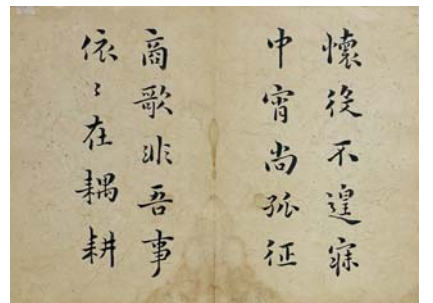 懷役不遑寐
中宵尚孤征
商歌非吾事
依〻在耦耕